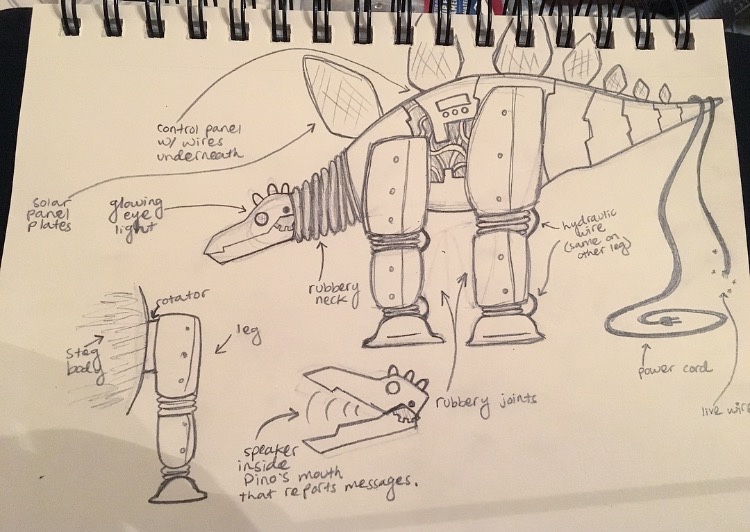 control panel
w/ wires
underneath
solar
panel
plates
glowing
eye
light
rubbery
neck
hydraulic
wire
(same on
other leg)
rotator
leg
steg
body
power cord
live wire
rubbery joints
speaker
inside
Dino's mouth
that reports messages.